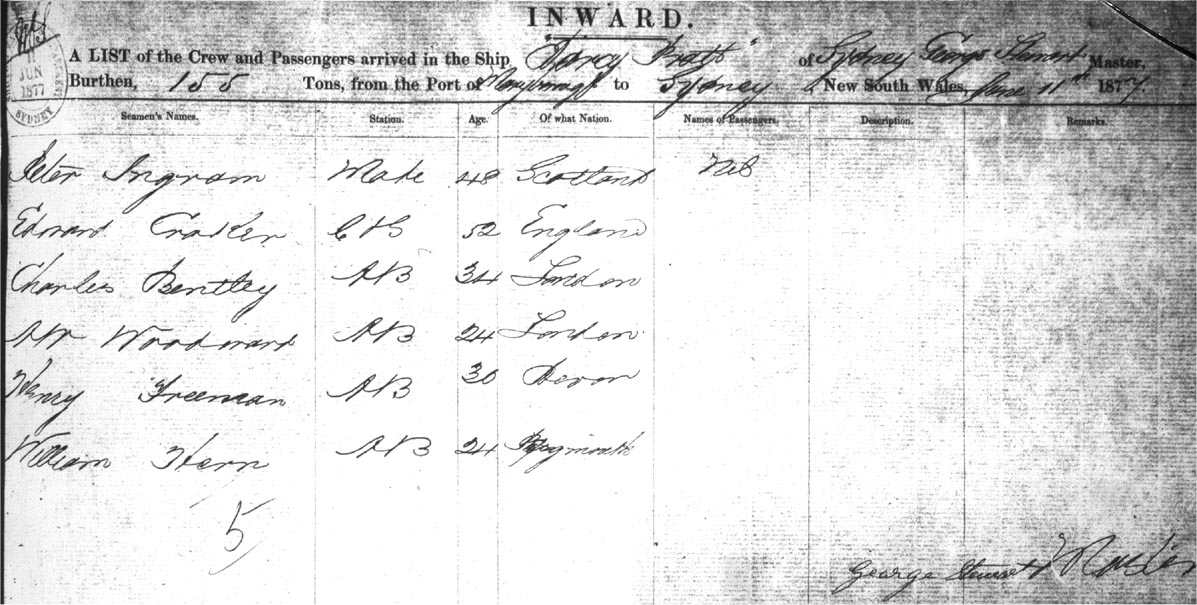 INWARD.
11
JUN
1877
SYDNEY
A LIST of the Crew and Passengers arrived in the Ship, "Darcy Pratt" of Sydney George Stewart Master,
Burthen, 155 Tons, from the Port of Maryborough to Sydney New South Wales, June 11th 1877.
Seamen's Names. Station. Age. Of what Nation. Names of Passengers. Description. Remarks.
Peter Ingram Mate 48 Scotland Nil
Edward Craker C & S 52 England
Charles Bentley AB 34 London
Woodward AB 24 London
Henry Freeman AB 30 Devon
William Hern AB 24
5
George Stewart Master